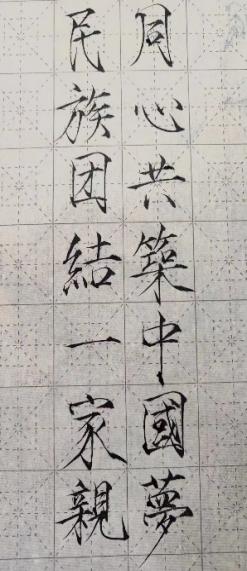 同心共築中國夢
民族团結一家親